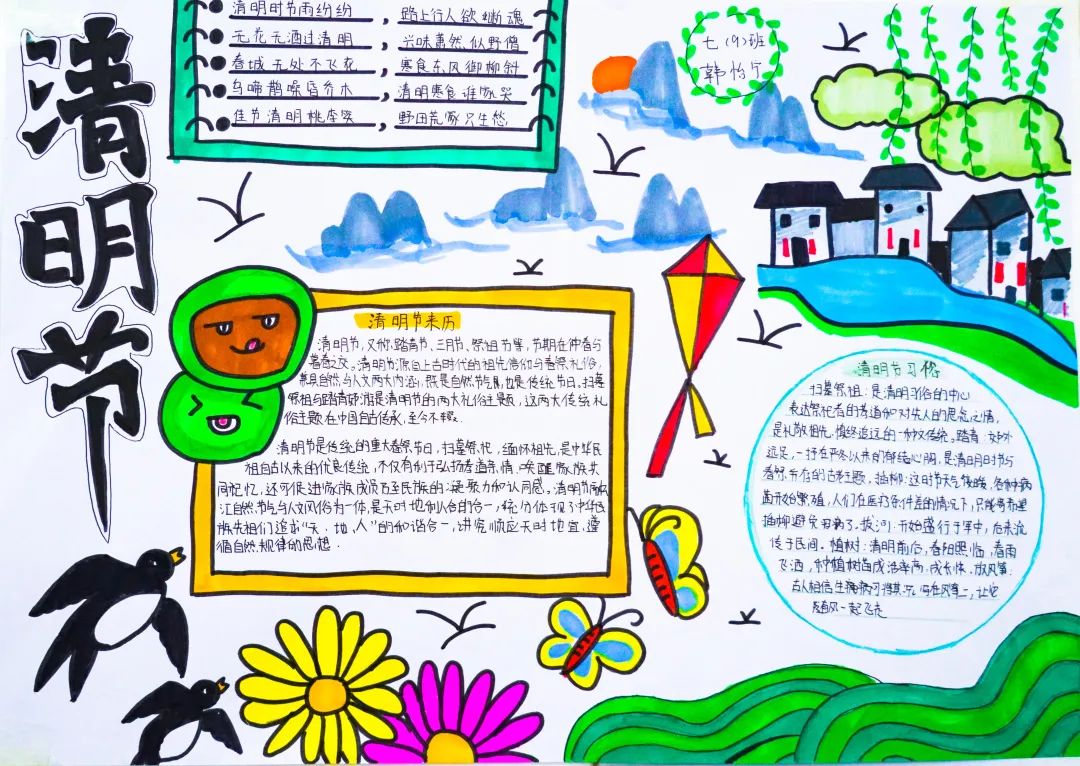 清明节
清明时节雨纷纷，路上行人欲断魂
无花无酒过清明，兴味萧然似野僧
春城无处不飞花，寒食东风御柳斜
乌啼鹊噪昏乔木，清明寒食谁家哭
佳节清明桃李笑，野田荒冢只生愁
七（9）班
韩怡
清明节来历
清明节，又称踏青节、三月节、祭祖节等，节期在仲春与
暮春之交。清明节源自上古时代的祖先信仰与春祭礼俗，
兼具自然与人文两大内涵，既是自然节气，也是传统节日，扫墓
祭祖与踏青郊游是清明节的两大礼俗主题，这两大传统礼
俗主题在中国自古传承，至今不辍。
清明节是传统的重大春祭节日，扫墓祭祀，缅怀祖先，是中华民
族自古以来的优良传统，不仅有利于弘扬孝道亲情、唤醒家族共
同记忆，还可促进家族成员乃至民族的凝聚力和认同感。清明节融
汇自然节气与人文风俗为一体，是天时地利人合的合一，充分体现了中华民
族先祖们追求“天、地、人”的和谐合一，讲究顺应天时地宜，遵
循自然规律的思想.
清明节习俗
扫墓祭祖：是清明习俗的中心
表达祭祀者的孝道和对先人的思念之情，
是礼敬祖先，慎终追远的一种文传统。踏青：
远足，一抒在严冬以来的郁结心胸，是清明时节与
春祭并存的古老主题，插柳：这时节天气暖，各种病
菌开始繁殖，人们在医疗条件差的情况下，只能寄希望
插柳避免了。拔河：开始盛行于军中，后来流
传于民间。植树：清明前后，春阳照临，春雨
飞洒，种植树苗成活率高，成长快，放风筝：
古人相信生病将其写在风筝上，让它
随风一起飞走